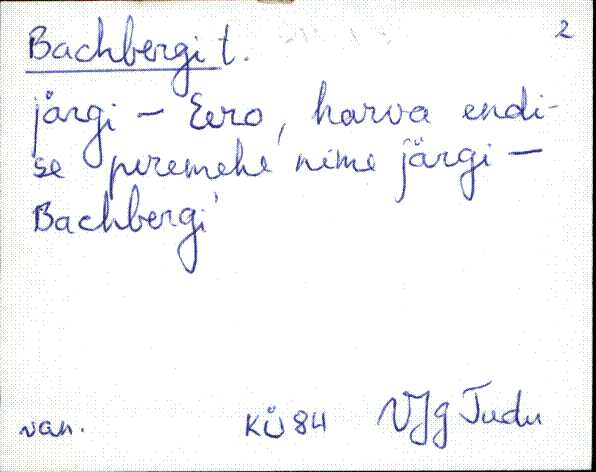 Bachbergi t. 2
järgi - Eero, harva endi-
se peremehe nime järgi -
Bachbergi
van. KÜ84 VJg Tudu